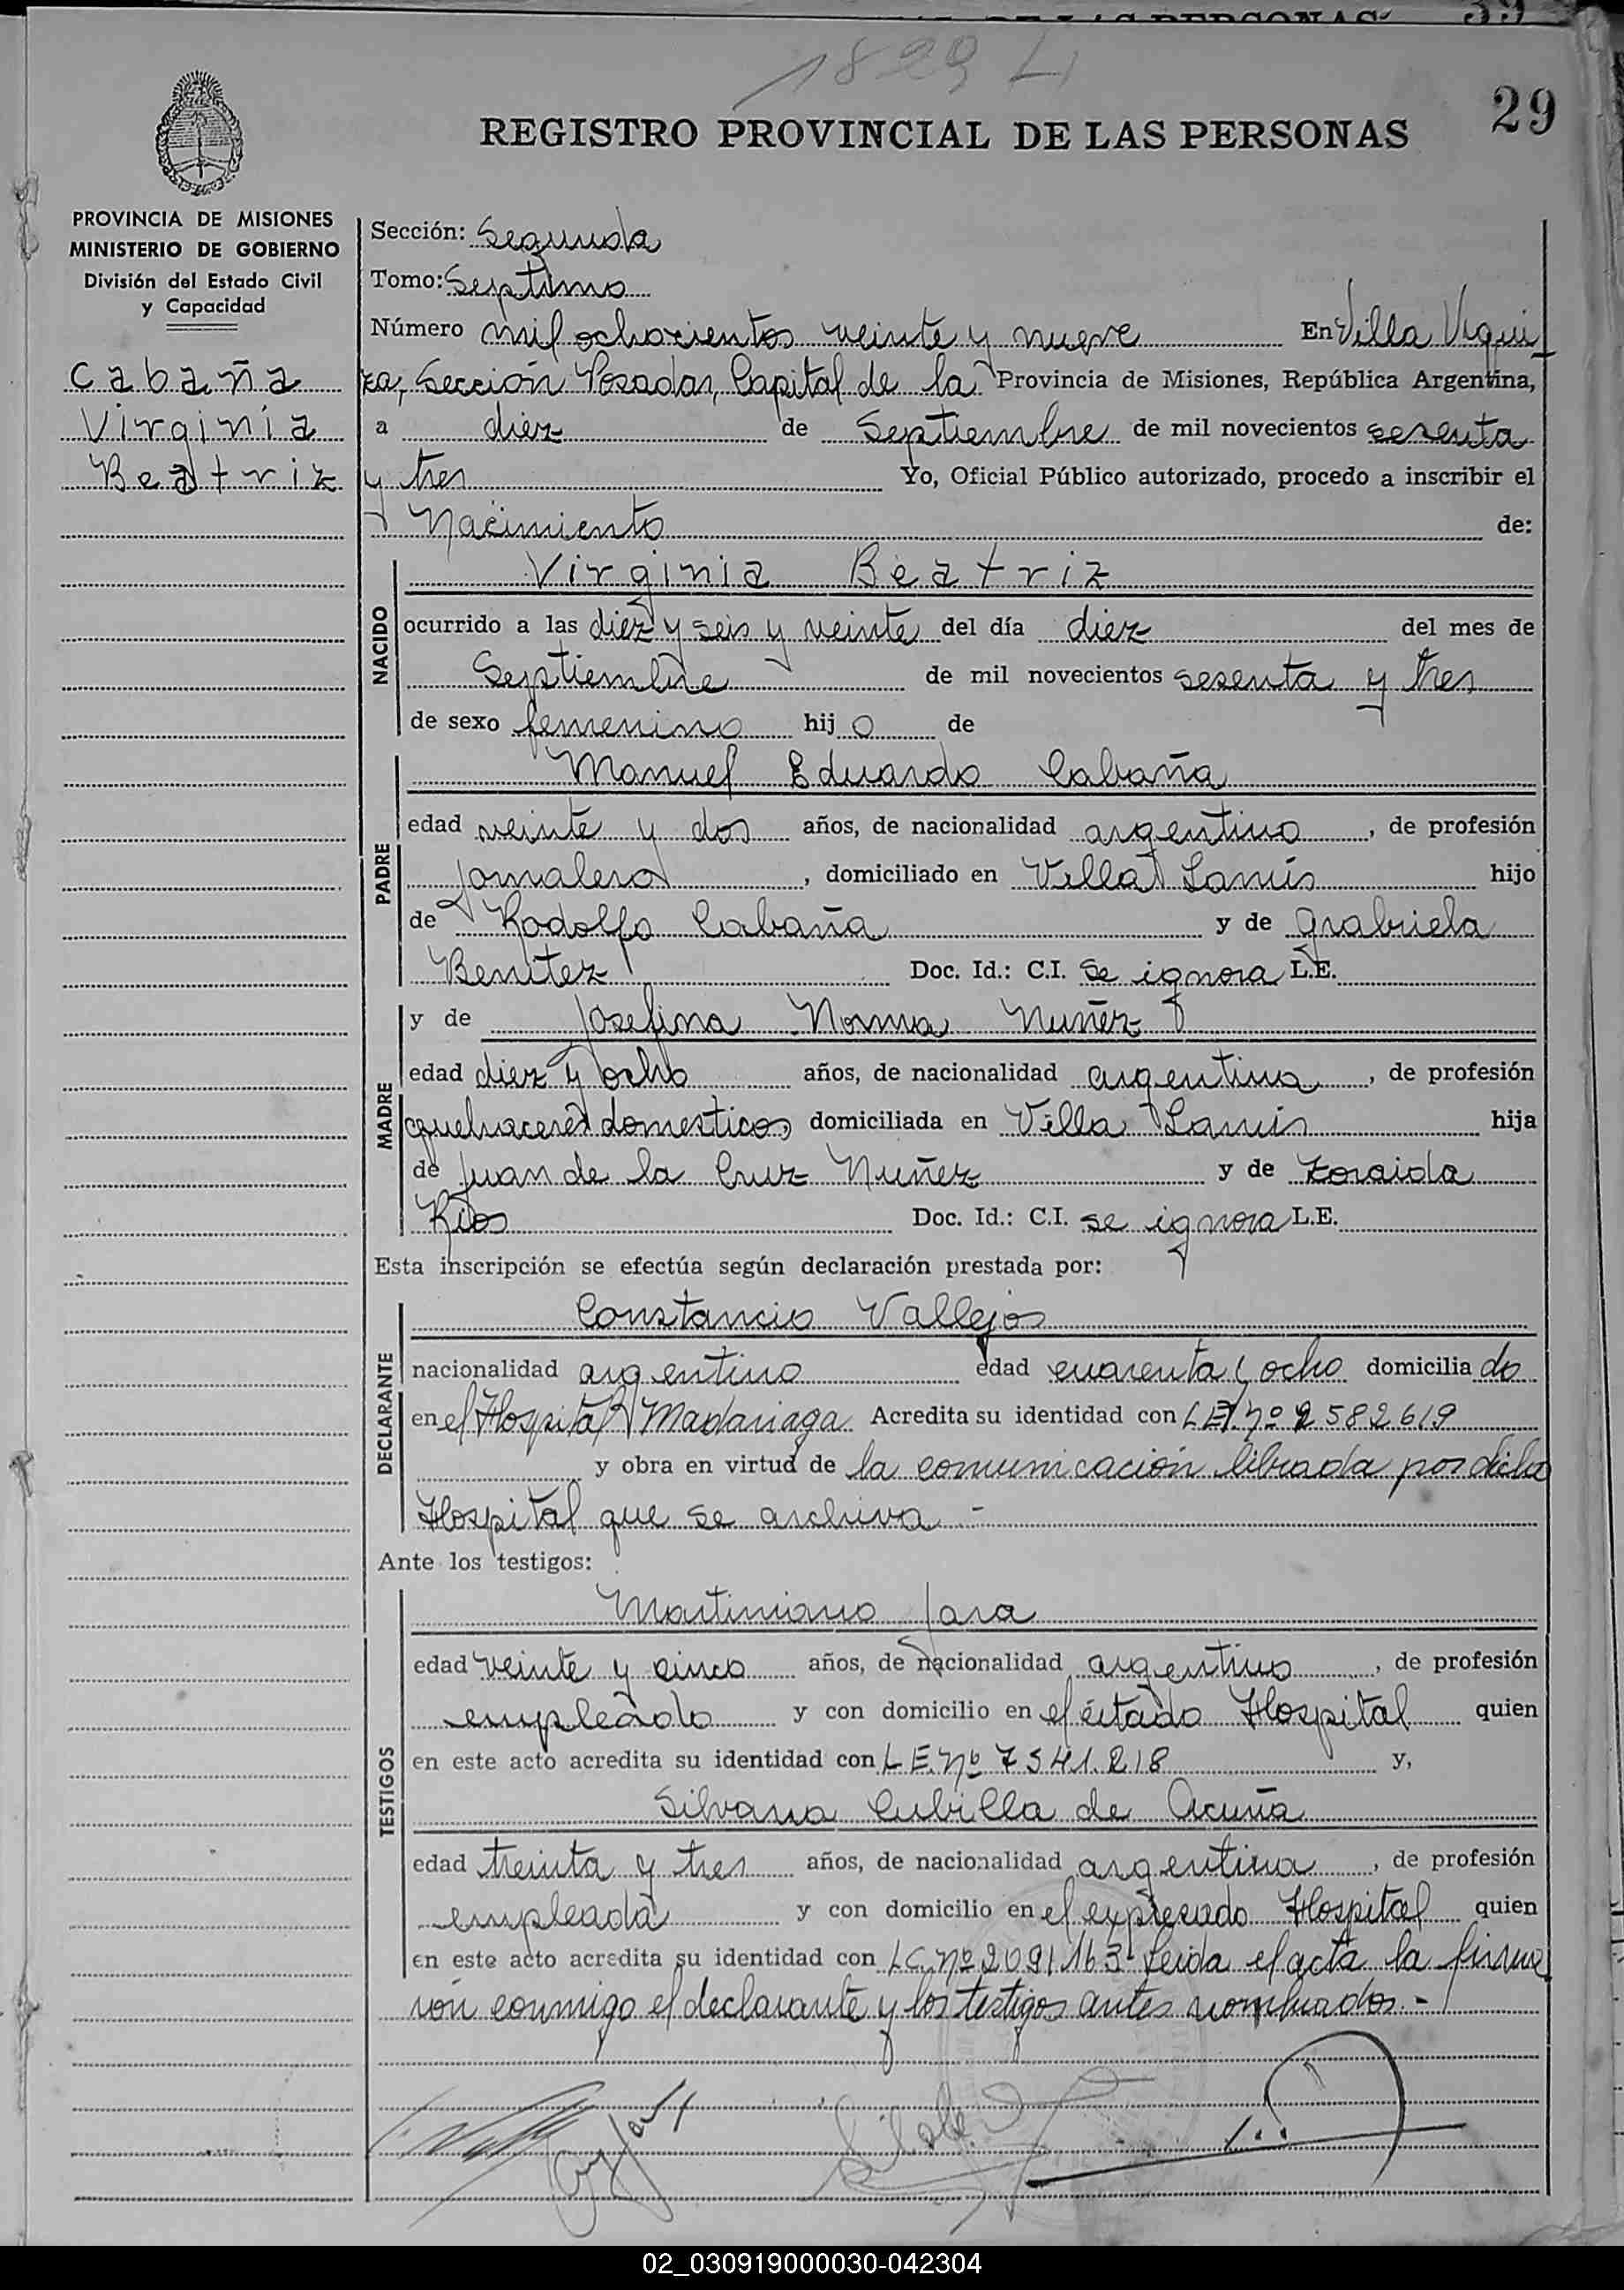 29
1829 L
REGISTRO PROVINCIAL DE LAS PERSONAS
PROVINCIA DE MISIONES
MINISTERIO DE GOBIERNO
División del Estado Civil
y Capacidad
Cabaña
Virginia
Beatriz
Sección: Segunda
Tomo: Septimo
Número mil ochocientos veinte y nueve En Villa Urqui
za, Sección Posadas, Capital de la Provincia de Misiones, República Argentina,
a diez de Septiembre de mil novecientos sesenta
y tres Yo, Oficial Público autorizado, procedo a inscribir el
Nacimiento de:
NACIDO
Virginia Beatriz
ocurrido a las diez y seis y veinte del día diez del mes de
Septiembre de mil novecientos sesenta y tres
de sexo femenino hijo de
PADRE
Manuel Eduardo Cabaña
edad veinte y dos años, de nacionalidad argentino, de profesión
jornalero, domiciliado en Villa Lanús hijo
de Rodolfo Cabaña y de Grabriela
Benitez Doc. Id.: C.I. se ignora L.E.
MADRE
y de Josefina Norma Nuñez
edad diez y ocho años, de nacionalidad argentina, de profesión
quehaceres domesticos, domiciliada en Villa Lanús hija
de Juan de la Cruz Nuñez y de Zoraida
Rios Doc. Id.: C.I. se ignora L.E.
Esta inscripción se efectúa según declaración prestada por:
DECLARANTE
Constancio Vallejos
nacionalidad argentino edad cuarenta y ocho domiciliado
en el Hospital R Madariaga Acredita su identidad con L.E. nº 2582619
y obra en virtud de la comunicación librada por dicho
Hospital que se archiva -
Ante los testigos:
TESTIGOS
Martiniano Jara
edad veinte y cinco años, de nacionalidad argentino, de profesión
empleado y con domicilio en el citado Hospital quien
en este acto acredita su identidad con L.E. nº 7541.218 y,
Silvana Cubilla de Acuña
edad treinta y tres años, de nacionalidad argentina, de profesión
empleada y con domicilio en el expresado Hospital quien
en este acto acredita su identidad con L.C. nº 2091163 - Leida el acta la firma
ron conmigo el declarante y los testigos antes nombrados. -
02_030919000030-042304